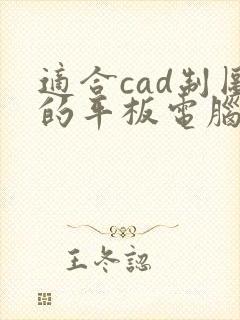 適合cad制圖
的平板電腦
王冬認